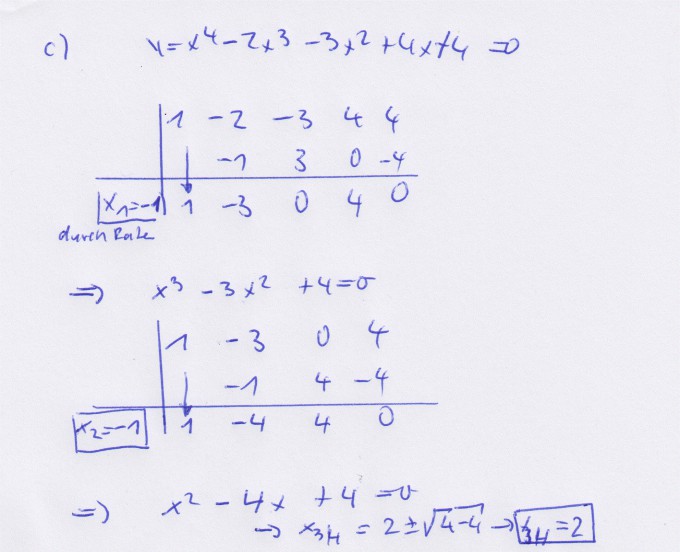 c) y=x⁴-2x³-3x²+4x+4 =0
1 -2 -3 4 4
-1 3 0 -4
x₁=-1 1 -3 0 4 0
durch Rate
⇒ x³-3x² +4=0
1 -3 0 4
-1 4 -4
x₂=-1 1 -4 4 0
⇒ x²-4x+4=0
→ x₃/₄ = 2±√4-4 → x₃/₄=2